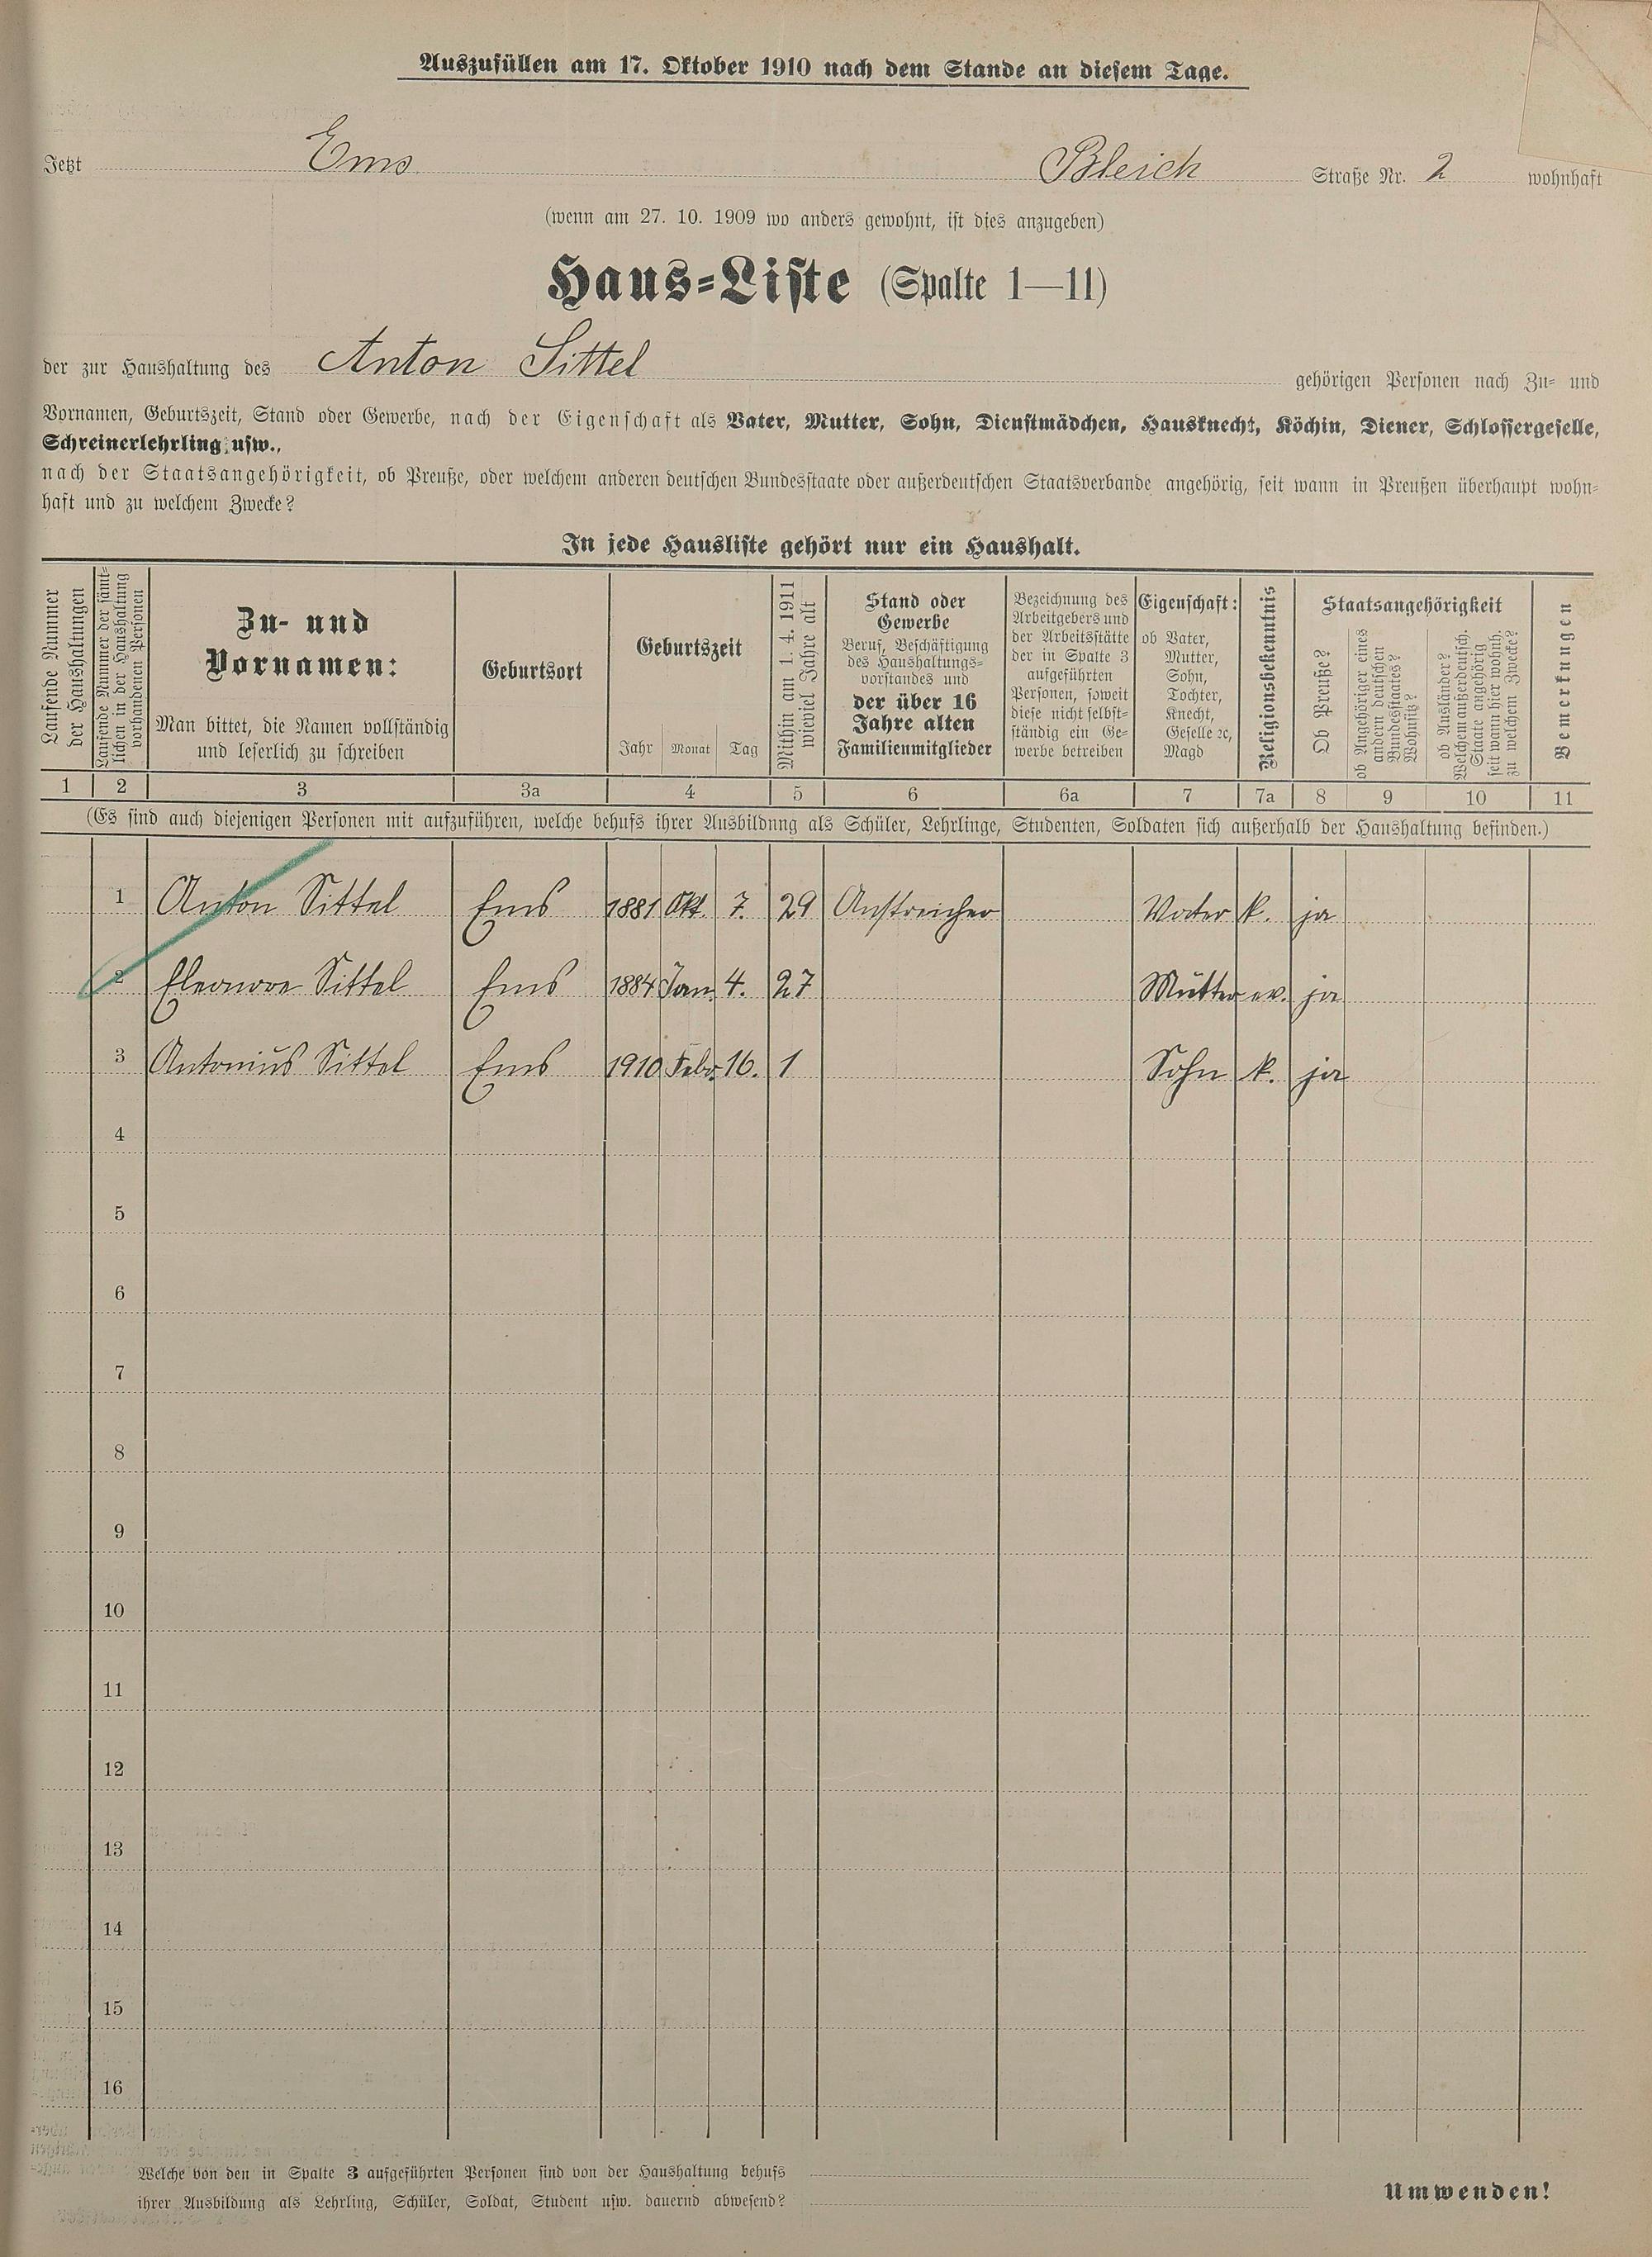 Auszufüllen am 17. Oktober 1910 nach dem Stande an diesem Tage.
Jetzt Ems Bleich Straße Nr. 2 wohnhaft
(wenn am 27. 10. 1909 wo anders gewohnt, ist dies anzugeben)
Haus-Liste (Spalte 1—11)
der zur Haushaltung des Anton Sittel gehörigen Personen nach Zu- und
Vornamen, Geburtszeit, Stand oder Gewerbe, nach der Eigenschaft als Vater, Mutter, Sohn, Dienstmädchen, Hausknecht, Köchin, Diener, Schlossergeselle,
Schreinerlehrling usw.,
nach der Staatsangehörigkeit, ob Preuße, oder welchem anderen deutschen Bundesstaate oder außerdeutschen Staatsverbande angehörig, seit wann in Preußen überhaupt wohn-
haft und zu welchem Zwecke?
In jede Hausliste gehört nur ein Haushalt.
Laufende Nummer
der Haushaltungen
Laufende Nummer der sämt-
lichen in der Haushaltung
vorhandenen Personen
Zu- und
Vornamen:
Man bittet, die Namen vollständig
und leserlich zu schreiben
Geburtsort
Geburtszeit
Jahr Monat Tag
Mithin am 1. 4. 1911
wieviel Jahre alt
Stand oder
Gewerbe
Beruf, Beschäftigung
des Haushaltungs-
vorstandes und
der über 16
Jahre alten
Familienmitglieder
Bezeichnung des
Arbeitgebers und
der Arbeitsstätte
der in Spalte 3
aufgeführten
Personen, soweit
diese nicht selbst-
ständig ein Ge-
werbe betreiben
Eigenschaft:
ob Vater,
Mutter,
Sohn,
Tochter,
Knecht,
Geselle ꝛc,
Magd
Religionsbekenntnis
Staatsangehörigkeit
Ob Preuße?
ob Angehöriger eines
andern deutschen
Bundesstaates?
Wohnsitz?
ob Ausländer?
Welchem außerdeutsch.
Staate angehörig
seit wann hier wohnh.
zu welchem Zwecke?
Bemerkungen
1 2 3 3a 4 5 6 6a 7 7a 8 9 10 11
(Es sind auch diejenigen Personen mit aufzuführen, welche behufs ihrer Ausbildung als Schüler, Lehrlinge, Studenten, Soldaten sich außerhalb der Haushaltung befinden.)
1 Anton Sittel Ems 1881 Okt. 7. 29 Anstreicher Vater k. ja
2 Eleonore Sittel Ems 1884 Jan. 4. 27 Mutter ev. ja
3 Antonius Sittel Ems 1910 Febr. 16. 1 Sohn k. ja
4
5
6
7
8
9
10
11
12
13
14
15
16
Welche von den in Spalte 3 aufgeführten Personen sind von der Haushaltung behufs
ihrer Ausbildung als Lehrling, Schüler, Soldat, Student usw. dauernd abwesend?
Umwenden!